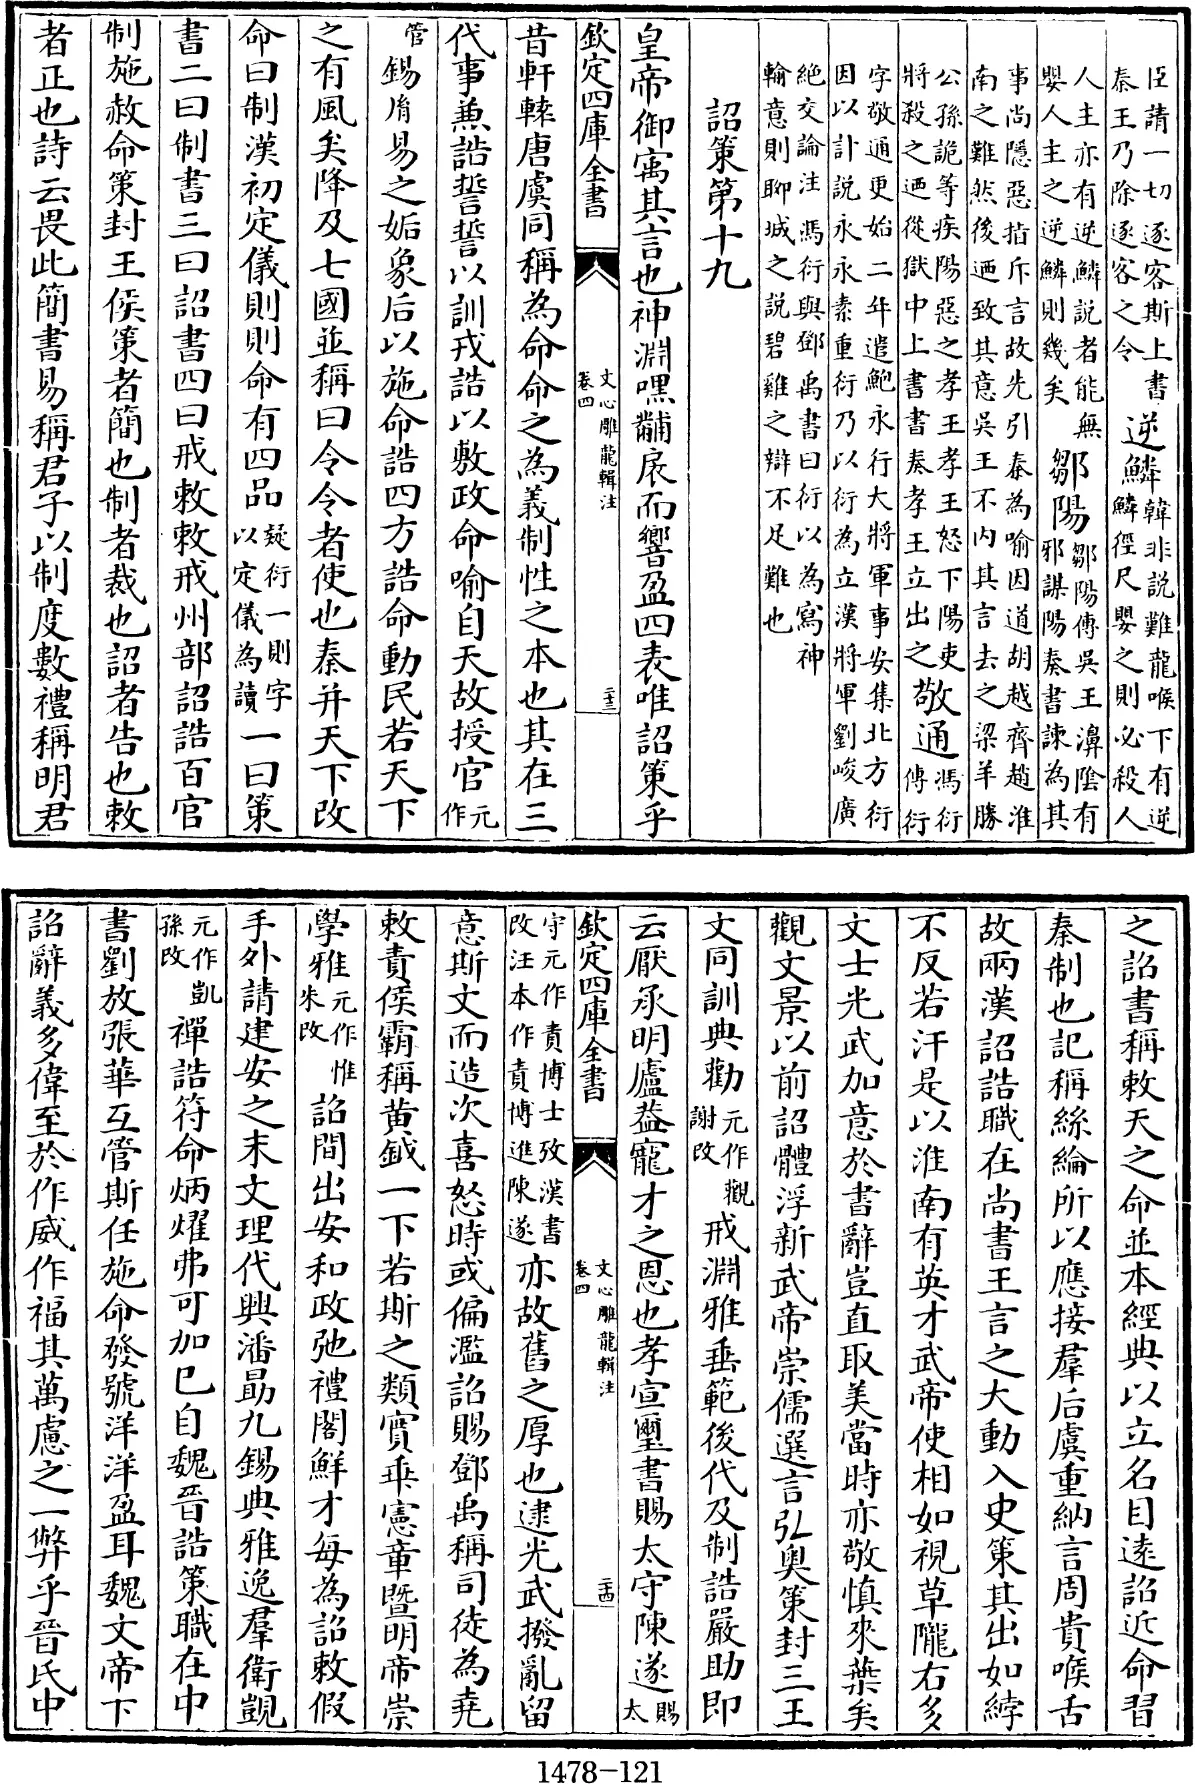 臣請一切逐客斯上書秦王乃除逐客之令逆鱗韓非說難龍喉下有逆鱗徑尺嬰之則必殺人
人主亦有逆鱗說者能無嬰人主之逆鱗則幾矣鄒陽鄒陽傳吳王濞陰有邪謀陽奏書諫為其
事尚隱惡指斥言故先引秦為喻因道胡越齊趙淮
南之難然後迺致其意吳王不內其言去之梁羊勝
公孫詭等疾陽惡之孝王孝王怒下陽吏將殺之迺從獄中上書書奏孝王立出之敬通馮衍傳衍
字敬通更始二年遣鮑永行大將軍事安集北方衍
因以計說永永素重衍乃以衍為立漢將軍劉峻廣
絶交論注馮衍與鄧禹書曰衍以為寫神
輸意則聊城之說碧雞之辯不足難也
詔策第十九
皇帝御㝢其言也神淵嘿黼扆而響盈四表唯詔策乎
欽定四庫全書
文心雕龍輯注
卷四
二十三
昔軒轅唐虞同稱為命命之為義制性之本也其在三
代事兼誥誓誓以訓戎誥以敷政命喻自天故授官元作
管錫胤易之姤象后以施命誥四方誥命動民若天下
之有風矣降及七國並稱曰令令者使也秦并天下改
命曰制漢初定儀則則命有四品疑衍一則字以定儀為讀一曰策
書二曰制書三曰詔書四曰戒敕敕戒州部詔誥百官
制施赦命策封王侯策者簡也制者裁也詔者告也敕
者正也詩云畏此簡書易稱君子以制度數禮稱明君
之詔書稱敕天之命並本經典以立名目逺詔近命習
秦制也記稱絲綸所以應接羣后虞重納言周貴喉舌
故兩漢詔誥職在尚書王言之大動入史策其出如綍
不反若汗是以淮南有英才武帝使相如視草隴右多
文士光武加意於書辭豈直取美當時亦敬慎來葉矣
觀文景以前詔體浮新武帝崇儒選言弘奥策封三王
文同訓典勸元作觀謝改戒淵雅垂範後代及制誥嚴助即
云厭承明廬葢寵才之恩也孝宣璽書賜太守陳遂賜太
欽定四庫全書
文心雕龍輯注
卷四
二十四
守元作責博士攷漢書改汪本作責博進陳遂亦故舊之厚也逮光武撥亂留
意斯文而造次喜怒時或偏濫詔賜鄧禹稱司徒為堯
敕責侯霸稱黄鉞一下若斯之類實乖憲章暨明帝崇
學雅元作惟朱改詔間出安和政弛禮閣鮮才每為詔敕假
手外請建安之末文理代興潘朂九錫典雅逸羣衛覬
元作凱孫改禪誥符命炳燿弗可加巳自魏晉誥策職在中
書劉放張華互管斯任施命發號洋洋盈耳魏文帝下
詔辭義多偉至於作威作福其萬慮之一弊乎晉氏中
1478-121